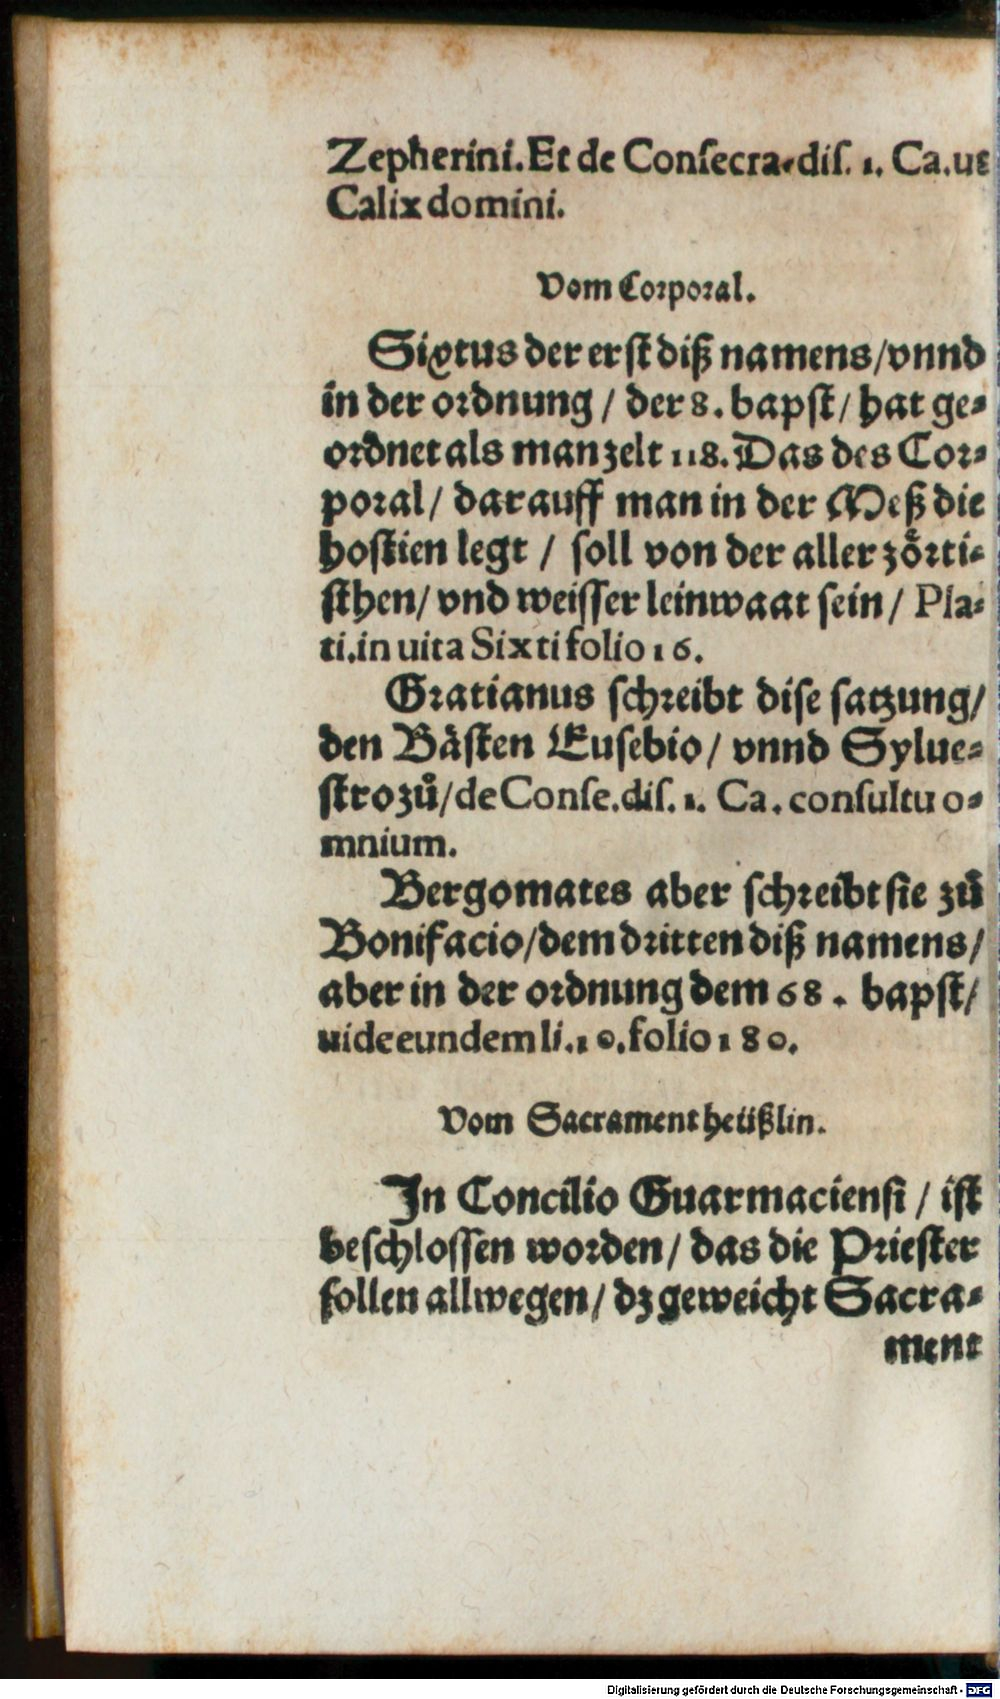 Zepherini. Et de Consecra. dis. 1. Ca. ut
Calix domini.
Vom Corporal.
Sixtus der erst diß namens / vnnd
in der ordnung / der 8. bapst / hat ge-
ordnet als man zelt 118. Das des Cor-
poral / darauff man in der Meß die
hostien legt / soll von der aller zörti-
sthen / vnd weisser leinwaat sein / Pla-
ti. in uita Sixti folio 16.
Gratianus schreibt dise satzung /
den Bästen Eusebio / vnnd Sylue-
stro zuͦ / de Conse. dis. 1. Ca. consultu o-
mnium.
Bergomates aber schreibt sie zuͦ
Bonifacio / dem dritten diß namens /
aber in der ordnung dem 68. bapst /
uide eundem li. 10. folio 180.
Vom Sacrament heüßlin.
In Concilio Guarmaciensi / ist
beschlossen worden / das die Priester
sollen allwegen / dz geweicht Sacra-
ment
Digitalisierung gefördert durch die Deutsche Forschungsgemeinschaft - DFG